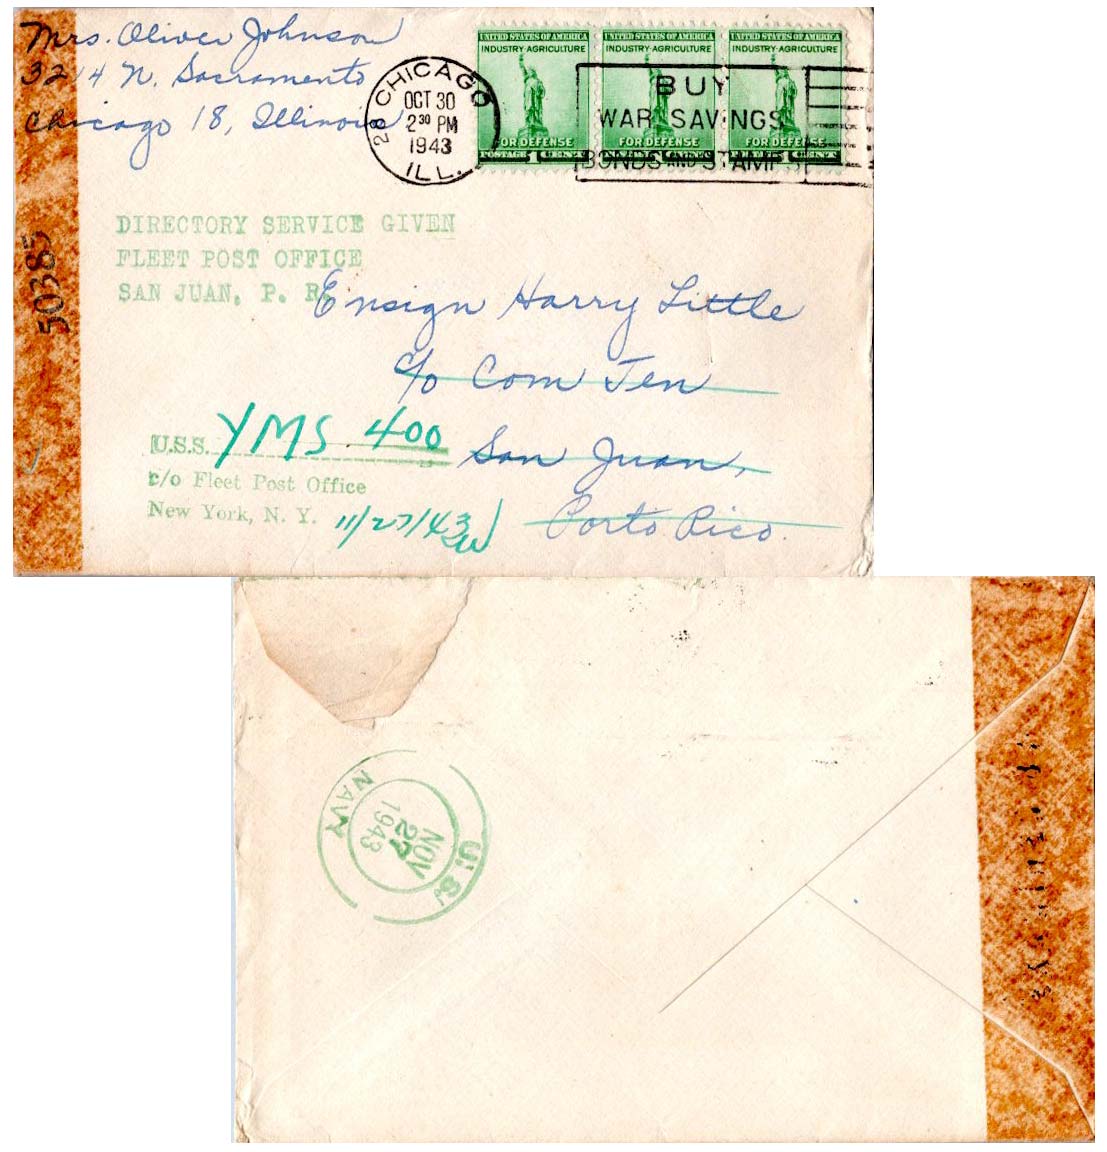 Mrs. Oliver Johnson
3214 N. Sacramento
Chicago 18, Illinois
28 CHICAGO
OCT 30
2 30 PM
1943
ILL.
UNITED STATES OF AMERICA
INDUSTRY·AGRICULTURE
FOR DEFENSE
POSTAGE 1 CENT
UNITED STATES OF AMERICA
INDUSTRY·AGRICULTURE
FOR DEFENSE
UNITED STATES OF AMERICA
INDUSTRY·AGRICULTURE
FOR DEFENSE
CENT
BUY
WAR SAVINGS
BONDS AND STAMPS
50385
DIRECTORY SERVICE GIVEN
FLEET POST OFFICE
SAN JUAN, P. R.
Ensign Harry Little
c/o Com Ten
San Juan,
Porto Rico.
U.S.S. YMS 400
c/o Fleet Post Office
New York, N. Y. 11/27/43
U.S.
NAVY
NOV
27
1943